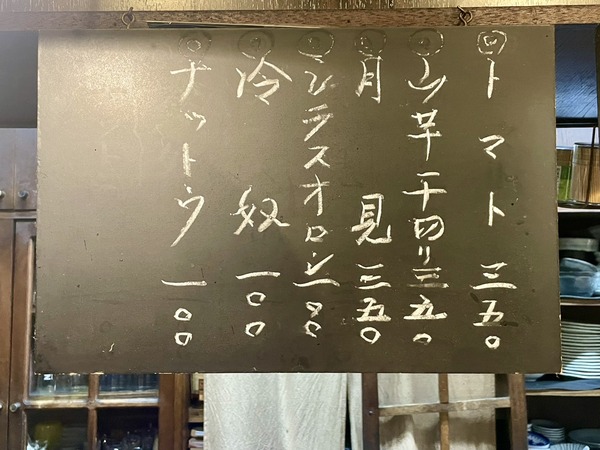 トマト 三五〇
山芋千切り 三五〇
月見 三五〇
シラスオロシ 一〇〇
冷奴 一〇〇
ナットウ 一〇〇